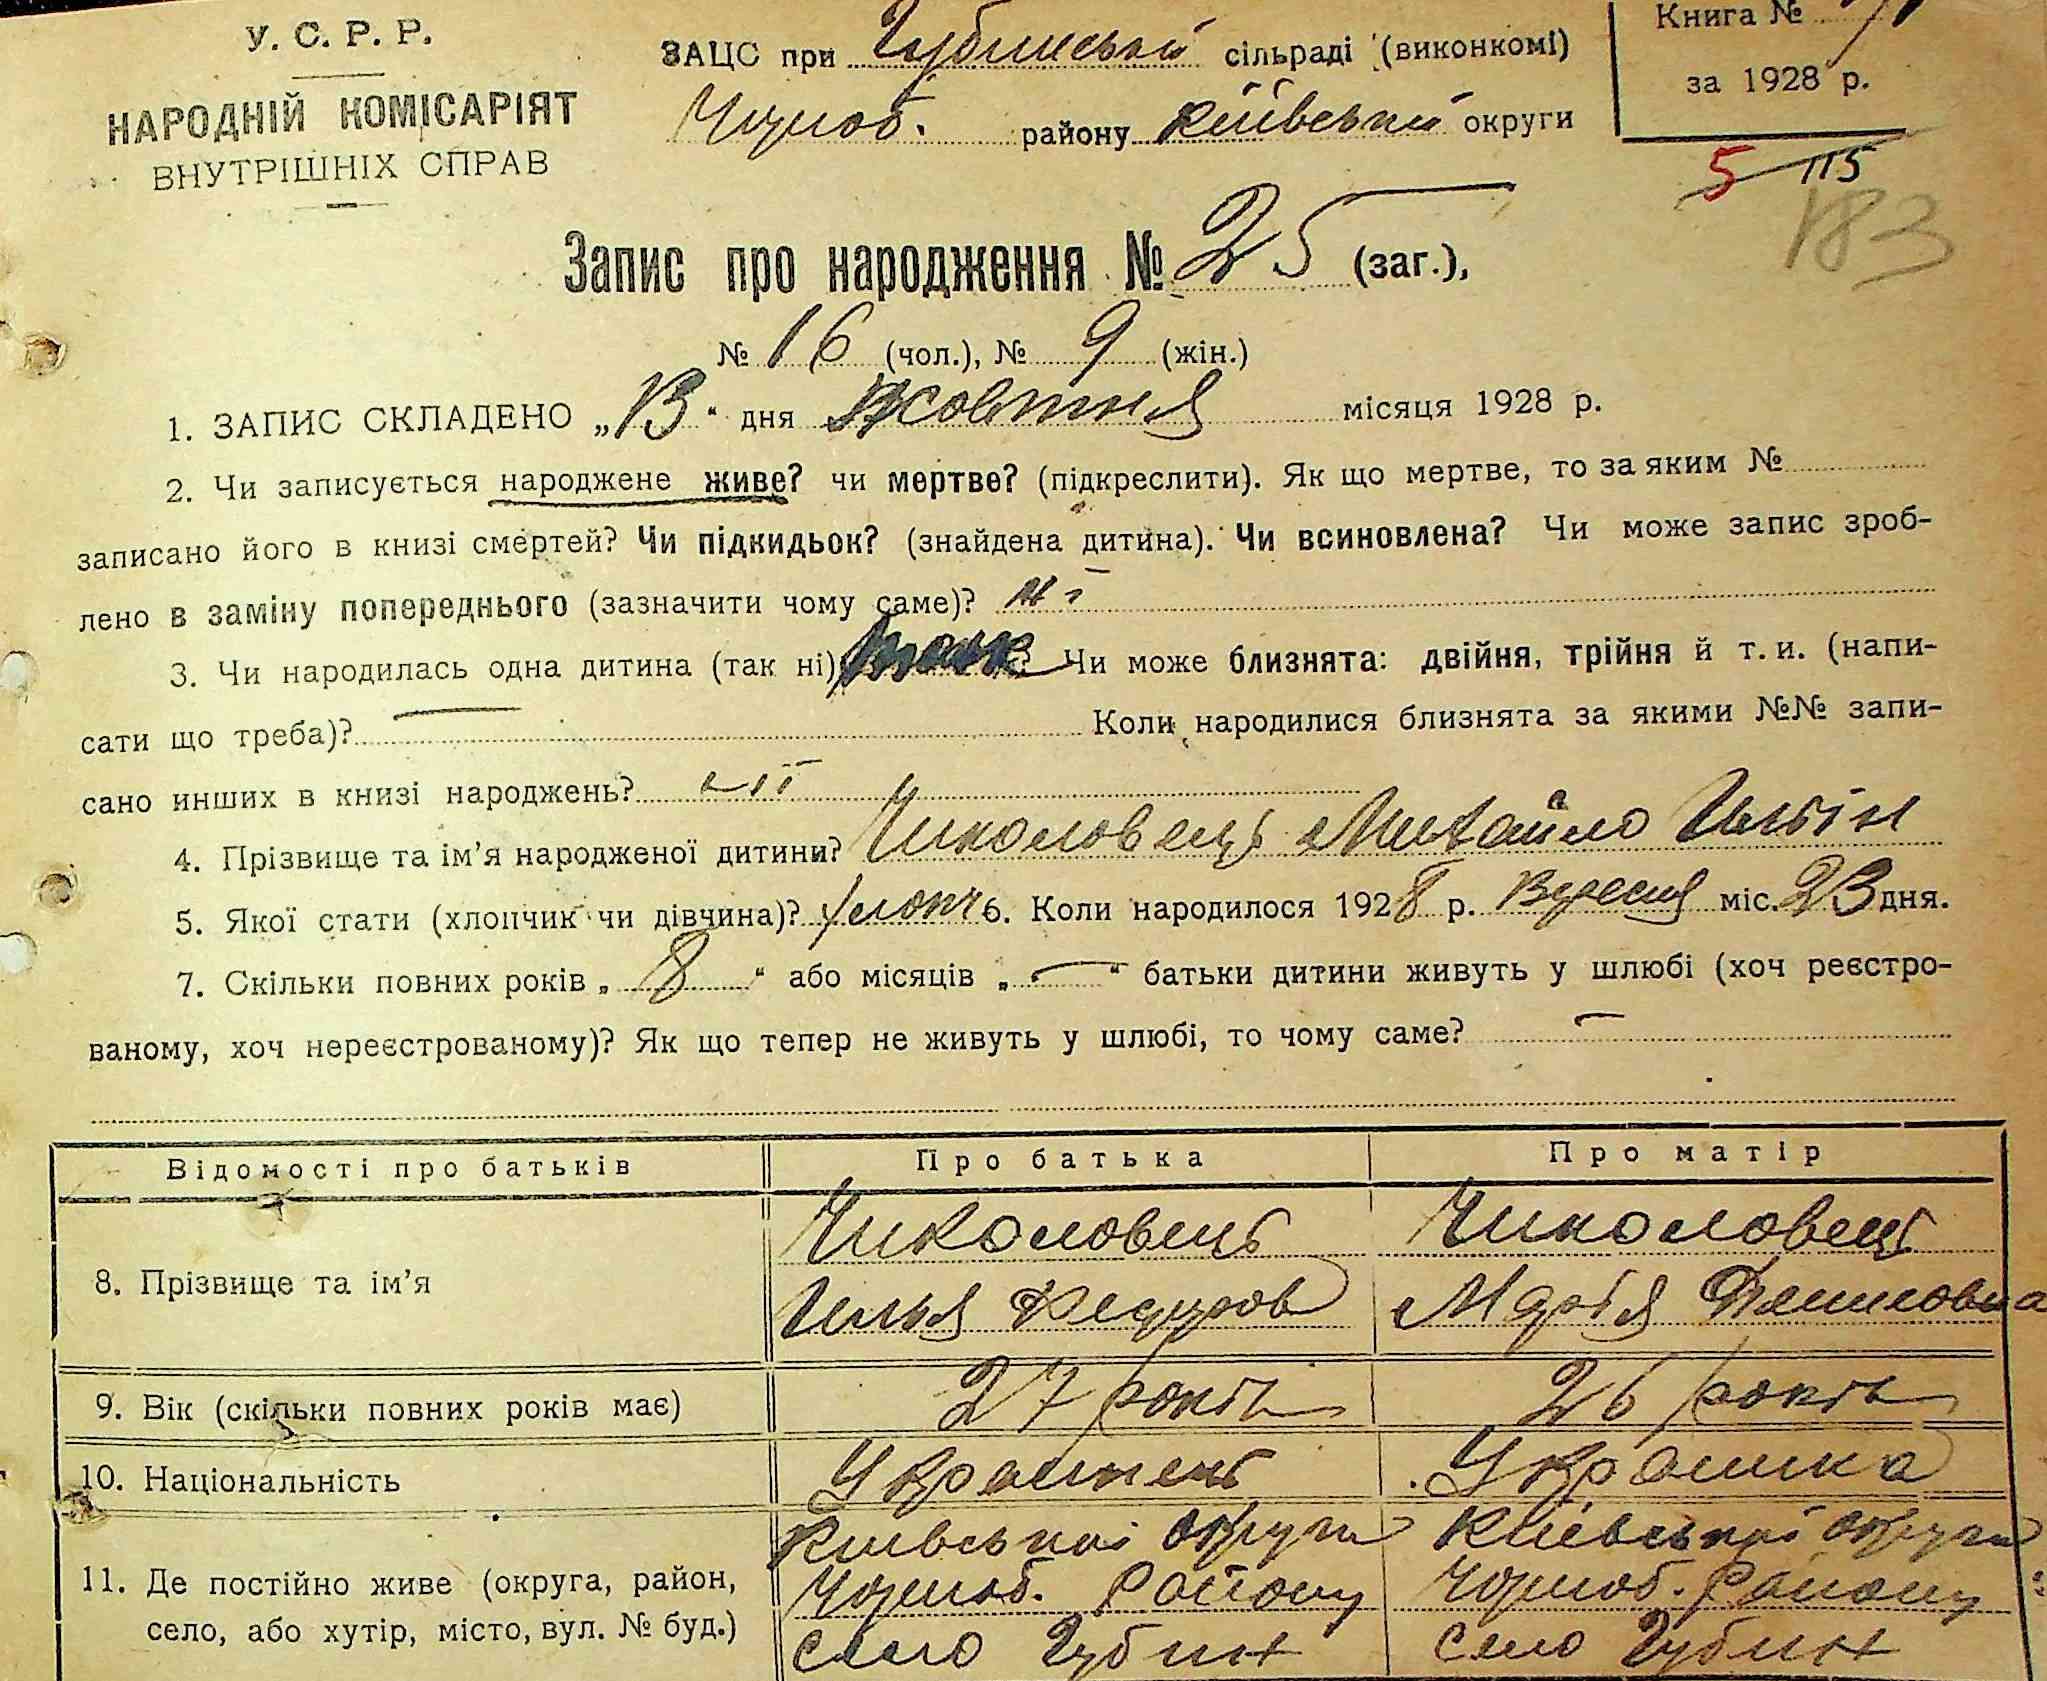 У. С. Р. Р.
НАРОДНІЙ КОМІСАРІЯТ
ВНУТРІШНІХ СПРАВ
ЗАЦС при Губинській сільраді (виконкомі)
Чорноб. району Київської округи
Книга №
за 1928 р.
5 115
183
Запис про народження № 25 (заг.),
№ 16 (чол.), № 9 (жін.)
1. ЗАПИС СКЛАДЕНО „13" дня Жовтня місяця 1928 р.
2. Чи записується народжене живе? чи мертве? (підкреслити). Як що мертве, то за яким №
записано його в книзі смертей? Чи підкидьок? (знайдена дитина). Чи всиновлена? Чи може запис зроб-
лено в заміну попереднього (зазначити чому саме)? ні
3. Чи народилась одна дитина (так ні) так? Чи може близнята: двійня, трійня й т. и. (напи-
сати що треба)? — Коли народилися близнята за якими №№ запи-
сано инших в книзі народжень?
4. Прізвище та ім'я народженої дитини? Чиколовець Михайло Ильін
5. Якої стати (хлопчик чи дівчина)? хлопч 6. Коли народилося 1928 р. Вересня міс. 23 дня.
7. Скільки повних років „ 8 " або місяців „ — " батьки дитини живуть у шлюбі (хоч реєстро-
ваному, хоч нереєстрованому)? Як що тепер не живуть у шлюбі, то чому саме? —
Відомості про батьків Про батька Про матір
8. Прізвище та ім'я
Чиколовець Чиколовець
Илья Федоров Марія
9. Вік (скільки повних років має) 27 років 26 років
10. Національність Українець Українка
11. Де постійно живе (округа, район,
село, або хутір, місто, вул. № буд.)
Київської округи Київської округи
Чорноб. Району Чорноб. Району
село Губин село Губин